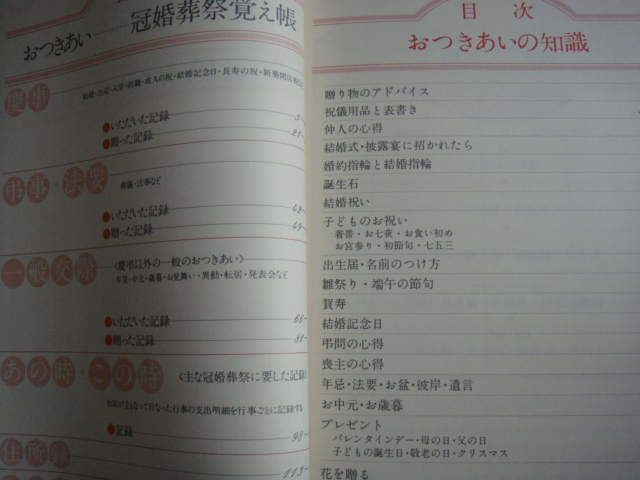 おつきあい 冠婚葬祭覚え帳
慶事
●いただいた記録 5
●贈った記録 21
弔事・法要
葬儀・法事など
●いただいた記録 42
●贈った記録 45
一般交際
〈慶弔以外の一般のおつきあい〉
年賀・中元・歳暮・お見舞い・異動・転居・発表会など
●いただいた記録 66
●贈った記録 81
あの時・この時
〈主な冠婚葬祭に要した記録〉
自家が主となって行なった行事の支出明細を行事ごとに記録する
●記録 95
住所録
113
目次
おつきあいの知識
贈り物のアドバイス
祝儀用品と表書き
仲人の心得
結婚式・披露宴に招かれたら
婚約指輪と結婚指輪
誕生石
結婚祝い
子どものお祝い
着帯・お七夜・お食い初め
お宮参り・初節句・七五三
出生届・名前のつけ方
雛祭り・端午の節句
賀寿
結婚記念日
弔問の心得
喪主の心得
年忌・法要・お盆・彼岸・遺言
お中元・お歳暮
プレゼント
バレンタインデー・母の日・父の日
子どもの誕生日・敬老の日・クリスマス
花を贈る